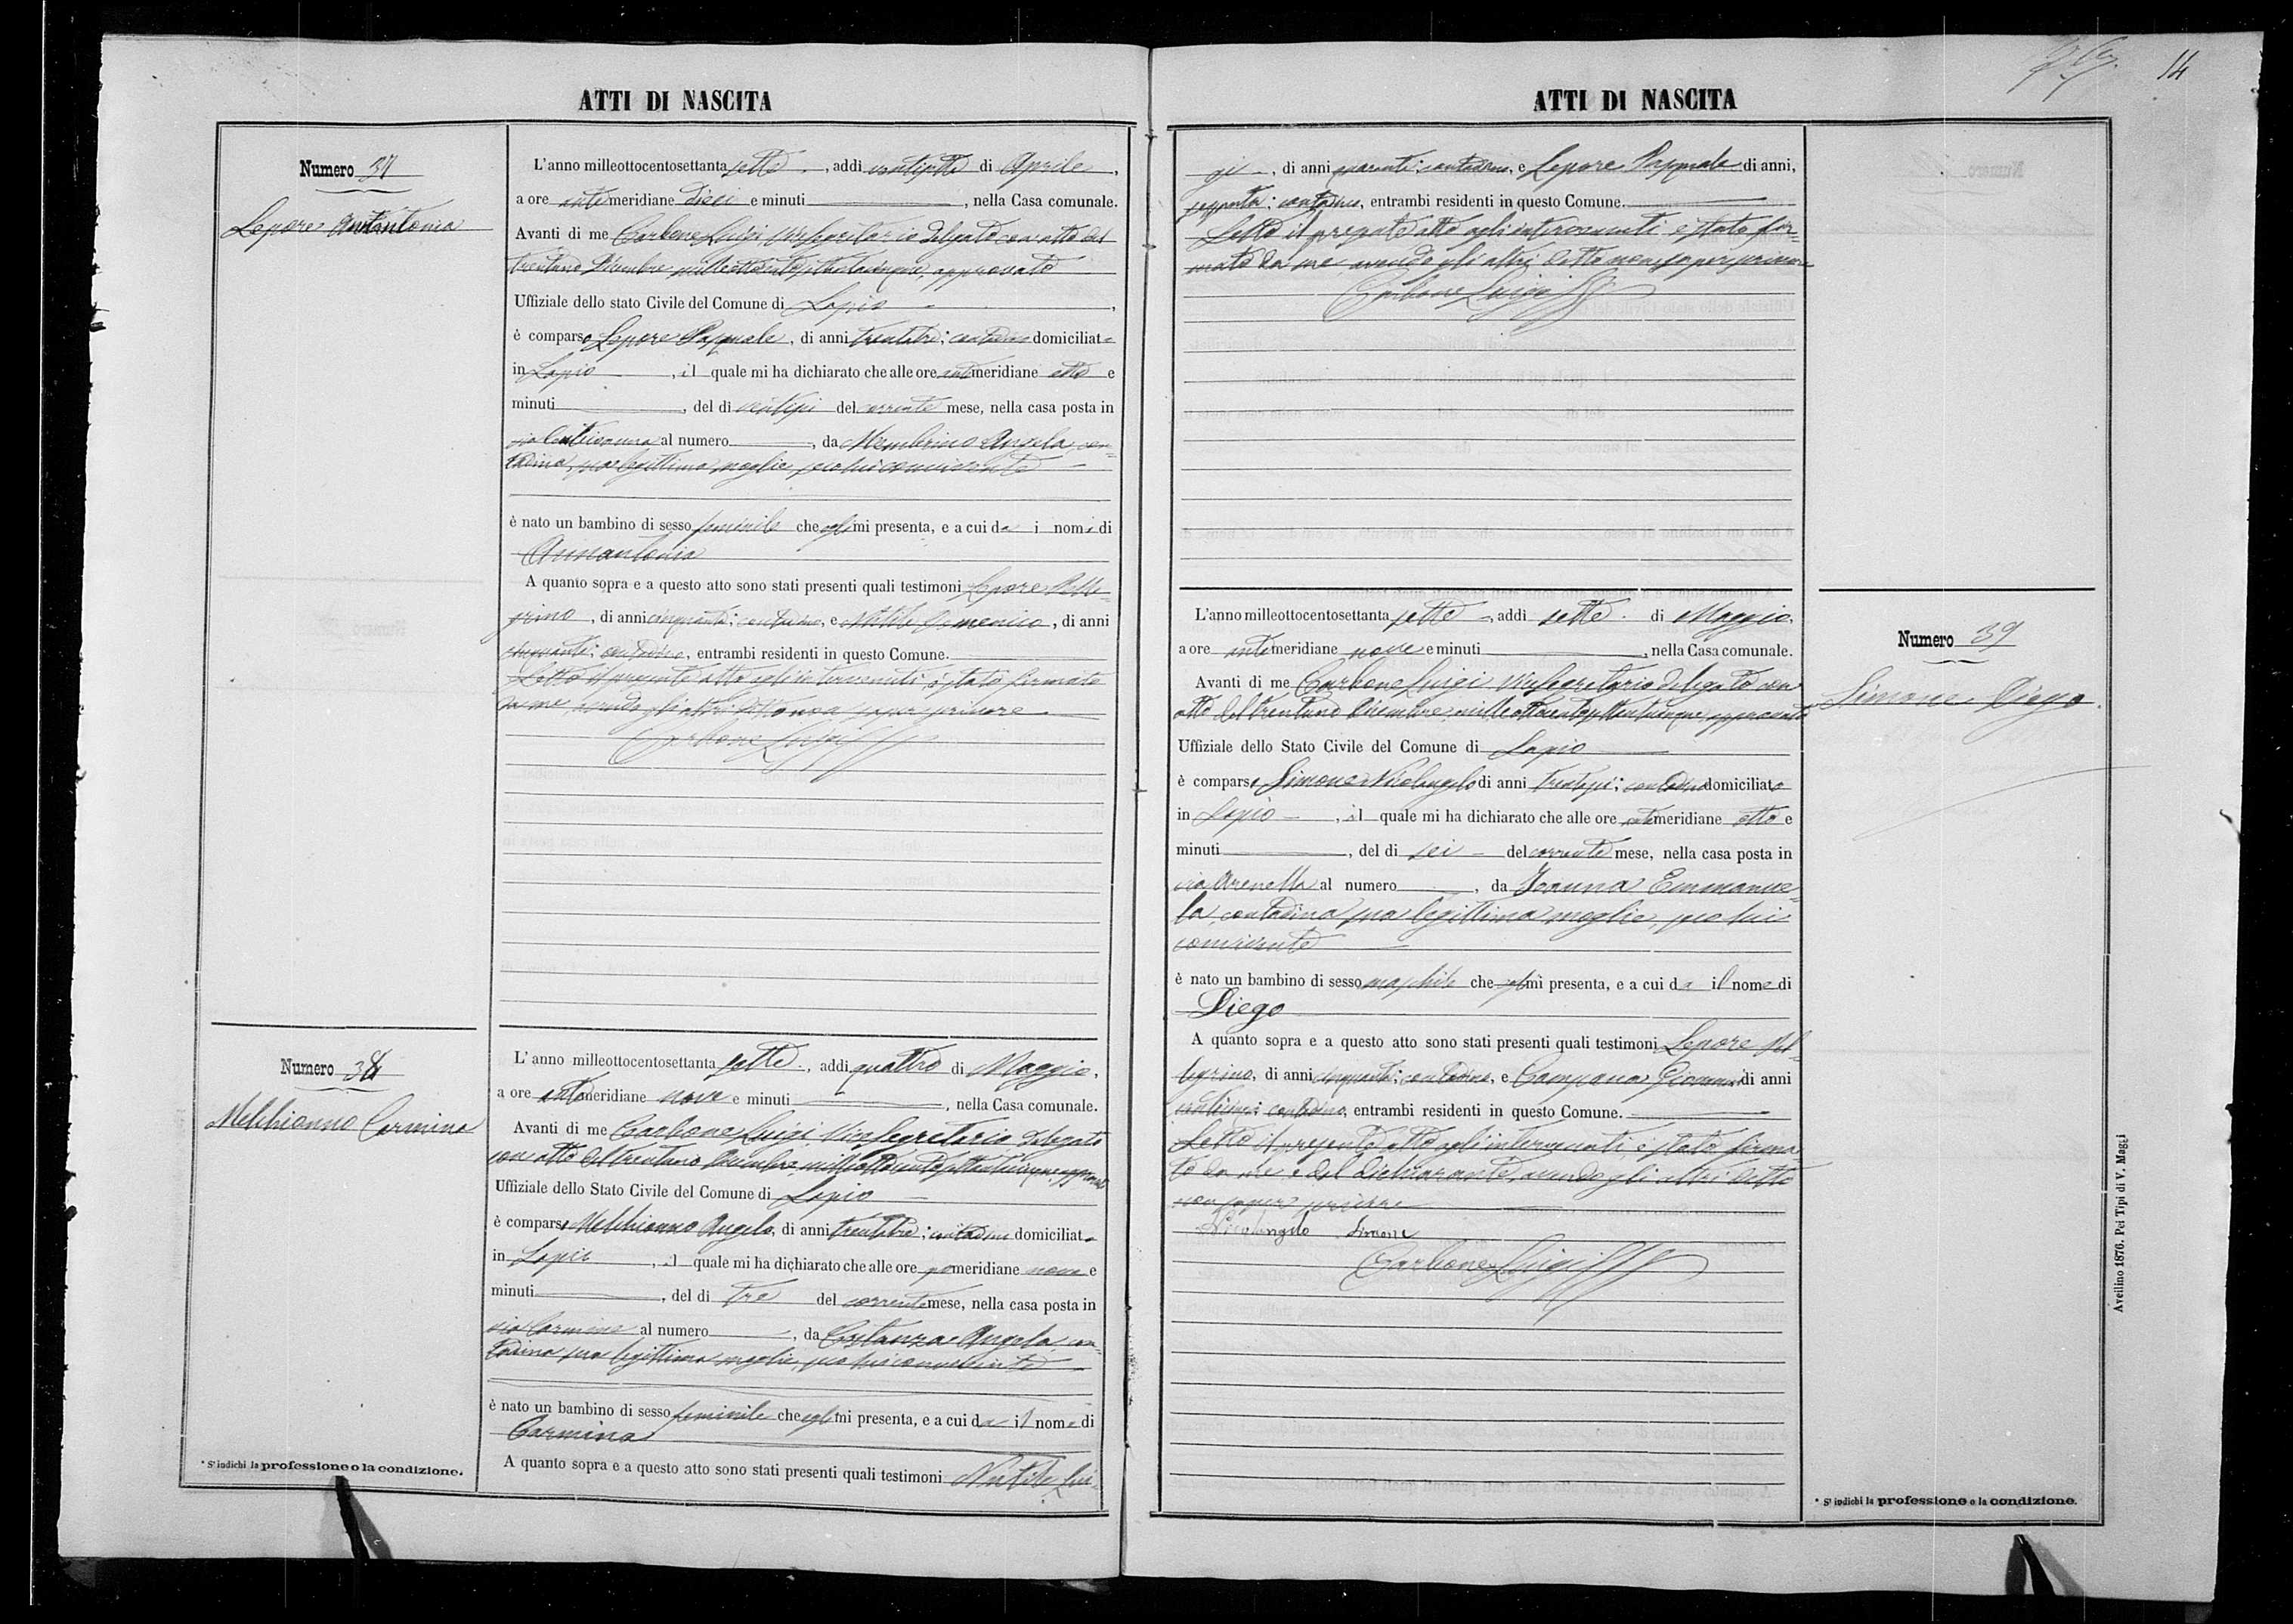 ATTI DI NASCITA
Numero 37
Lepore Annantonia
L'anno milleottocentosettanta sette, addì ventisette di Aprile,
a ore antimeridiane dieci e minuti , nella Casa comunale.
Avanti di me Carbone Luigi Vicesegretario delegato con atto del
trentuno Dicembre milleottocentosettantacinque, approvato
Uffiziale dello stato Civile del Comune di Lapio
è comparso Lepore Pasquale, di anni trentatre; contadino domiciliato
in Lapio, il quale mi ha dichiarato che alle ore antimeridiane otto e
minuti , del dì ventisei del corrente mese, nella casa posta in
via al numero , da Membrino Angela con-
tadina, sua legittima moglie, seco lui convivente
è nato un bambino di sesso feminile che egli mi presenta, e a cui da i nomi di
Annantonia
A quanto sopra e a questo atto sono stati presenti quali testimoni Lepore Pelle-
grino, di anni cinquanta; contadino, e Nutile Domenico, di anni
cinquanta; contadino, entrambi residenti in questo Comune.
Letto il presente atto agli intervenuti è stato firmato
da me avendo gli altri detto non saper scrivere
Carbone Luigi
Numero 38
Melchionno Carmina
L'anno milleottocentosettanta sette, addì quattro di Maggio,
a ore antimeridiane nove e minuti , nella Casa comunale.
Avanti di me Carbone Luigi Vicesegretario delegato
con atto del trentuno Dicembre milleottocentosettantacinque, approvato
Uffiziale dello Stato Civile del Comune di Lapio
è comparso Melchionno Angelo, di anni trentatre; contadino domiciliato
in Lapio, il quale mi ha dichiarato che alle ore pomeridiane nove e
minuti , del dì tre del corrente mese, nella casa posta in
via Carmine al numero , da Costanza Angela con-
tadina sua legittima moglie, seco lui convivente
è nato un bambino di sesso feminile che egli mi presenta, e a cui da il nome di
Carmina
A quanto sopra e a questo atto sono stati presenti quali testimoni Nutile Lui-
* S'indichi la professione o la condizione.
ATTI DI NASCITA
14
gi, di anni quaranta; contadino, e Lepore Pasquale di anni,
sessanta; contadino, entrambi residenti in questo Comune.
Letto il presente atto agli intervenuti è stato fir-
mato da me avendo gli altri detto non saper scrivere
Carbone Luigi
Numero 39
Simone Diego
L'anno milleottocentosettanta sette, addì sette di Maggio,
a ore antimeridiane nove e minuti , nella Casa comunale.
Avanti di me Carbone Luigi Vicesegretario delegato con
atto del trentuno Dicembre milleottocentosettantacinque, approvato
Uffiziale dello Stato Civile del Comune di Lapio
è comparso Simone Nicolangelo di anni trentasei; contadino domiciliato
in Lapio, il quale mi ha dichiarato che alle ore antimeridiane otto e
minuti , del dì sei del corrente mese, nella casa posta in
via Arenella al numero , da Joanna Emmanue-
la, contadina sua legittima moglie, seco lui
convivente
è nato un bambino di sesso maschile che egli mi presenta, e a cui da il nome di
Diego
A quanto sopra e a questo atto sono stati presenti quali testimoni Lepore Pel-
legrino, di anni cinquanta; contadino, e Campana Giovanni di anni
contadino, entrambi residenti in questo Comune.
Letto il presente atto agli intervenuti è stato firma-
to da me e dal dichiarante, avendo gli altri detto
non saper scrivere
Nicolangelo Simone
Carbone Luigi
* S'indichi la professione o la condizione.
Avellino 1876. Pei Tipi di V. Maggi